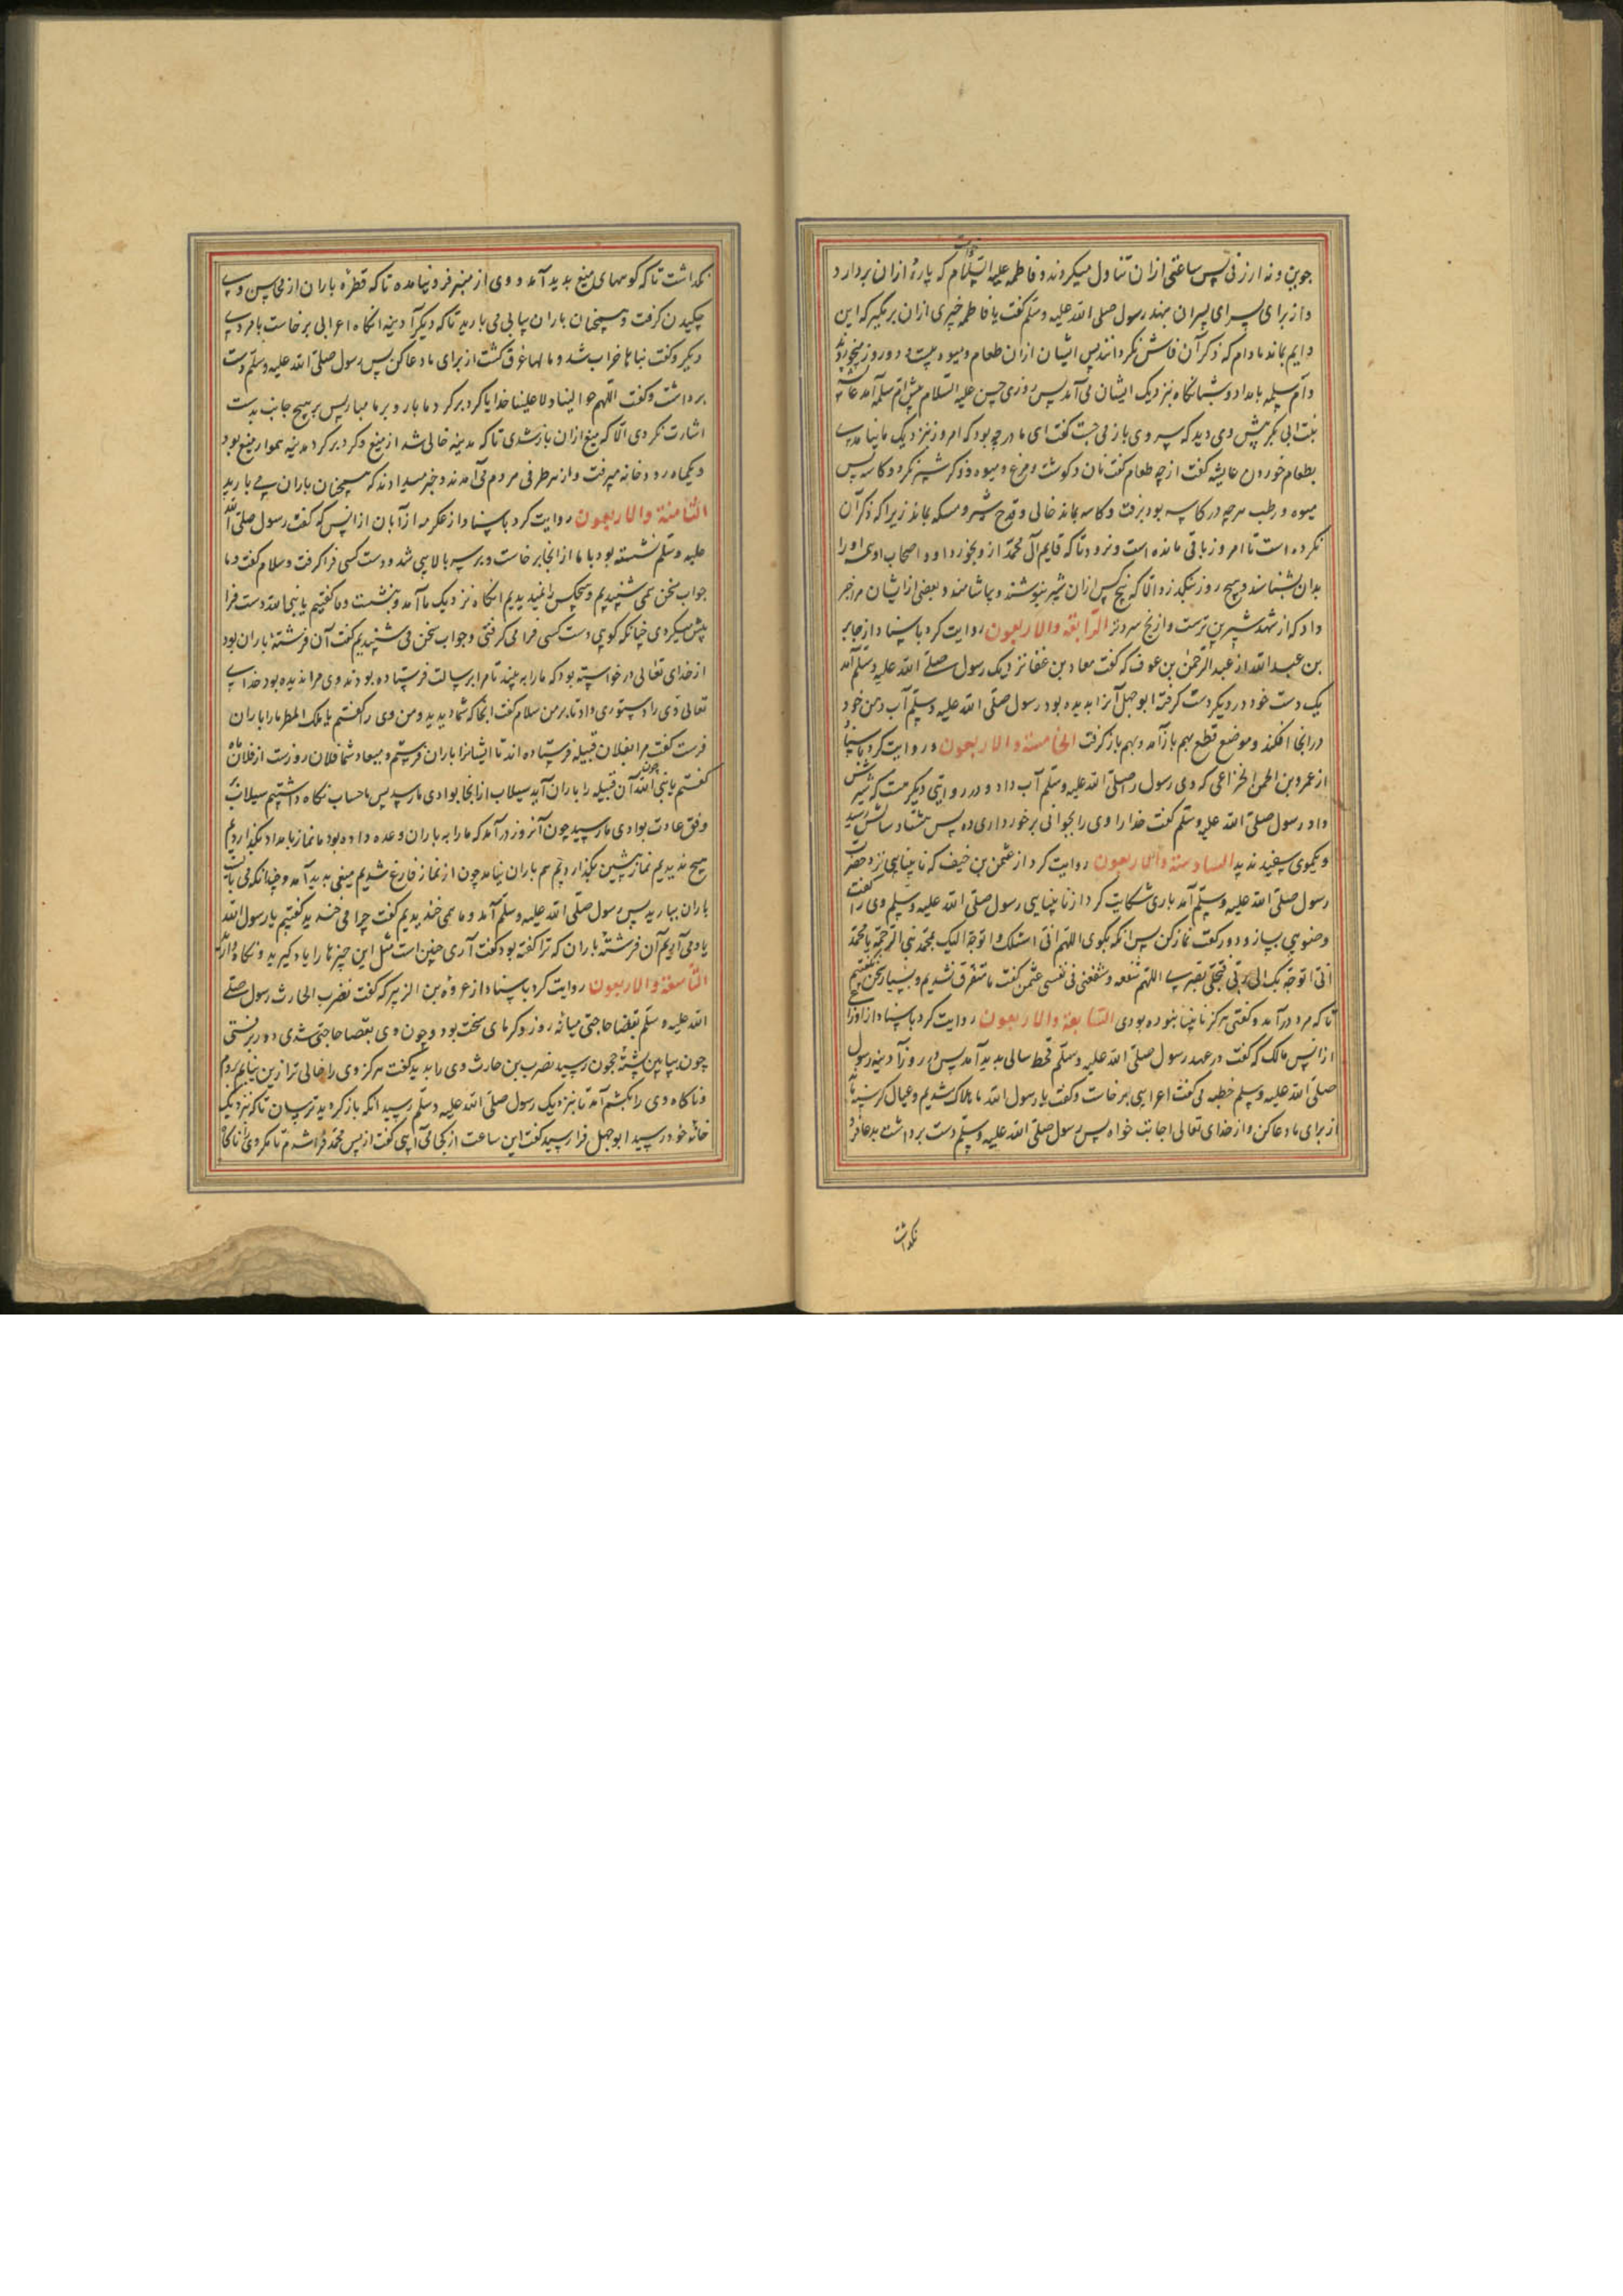 جوین و نه ارزنی پس ساعتی ازان تناول میکردند و فاطمه علیها السلام خواست که پارۀ ازان بردارد
و از برای پسرای پسران بنهد رسول صلی الله علیه وسلم گفت یا فاطمه خیری ازان بر مگیر که این
دایم بماند مادام که ذکر آن فاش نگردانند پس ایشان ازان طعام و میوه بیست و دو روز میخوردند
و ام سلمه بامداد و شبانگاه بنزدیک ایشان می آمد پس روزی حسن علیه السلام پیش ام سلمه آمد عایشه
بنت ابی بکر پیش وی دید که پسر وی بازمی جست گفت ای مادر چه بود که امروز نزدیک ما نیامدی
بطعام خوردن عایشه گفت از چه طعام گفت نان و گوشت و مرغ و میوه و ذکر شیر نکرد و کاسه پس
میوه و رطب هرچه در کاسه بود برفت و کاسه بماند خالی و قدح شیر و مسکه بماند زیرا که ذکر آن
نکرده است تا امروز باقی مانده است و نرود تا که قایم آل محمد از و بخورد او و اصحاب او همه او را
بدان بشناسند و هیچ روز نگذرد الا که پنج کس ازان شیر بنوشند و بیاشامند و بعضی از ایشان مرا خبر
داد که از شهد شیرین ترست و از یخ سردتر الرابعة والاربعون روایت کرد باسناد از جابر
بن عبد الله از عبد الرحمن بن عوف که گفت معاذ بن عفا نزدیک رسول صلی الله علیه وسلم آمد
یک دست خود در دیگر دست گرفته ابو جهل آنرا بدیده بود رسول صلی الله علیه وسلم آب دهن خود
در انجا افکند و موضع قطع بهم باز آمد و بهم بازگرفت الخامسة والاربعون و روایت کرد باسناد
از عمرو بن الحمق الخزاعی که وی رسول را صلی الله علیه وسلم آب داد و در روایتی دیگرست که شیرش
داد رسول صلی الله علیه وسلم گفت خدا را وی را بجوانی برخورداری ده پس هشتاد سالش رسید
و یکموی سفید ندید السادسة والاربعون روایت کرد از عثمن بن حنیف که نابینایی نزد حضرت
رسول صلی الله علیه وسلم آمد باری شکایت کرد از نابینایی رسول صلی الله علیه وسلم وی را گفت
وضویی بساز و دو رکعت نماز کن پس انگه بگوی اللهم انی اسئلک و اتوجه الیک بمحمد نبی الرحمة یا محمد
انی اتوجه بک الی ربی فیجلی بصری اللهم شفعه و شفعنی فی نفسی عثمن گفت ما متفرق نشدیم و بسیار سخن نگفتیم
تا که مرد درآمد و گفتی هرگز نابینا نبوده بودی السابعة والاربعون روایت کرد باسناد از اوزاعی
از انس مالک که گفت در عهد رسول صلی الله علیه وسلم قحط سالی پدید آمد پس در روز آدینه رسول
صلی الله علیه وسلم خطبه می گفت اعرابیی برخاست و گفت یا رسول الله ما هلاک شدیم و عیال گرسنه ماند
از برای ما دعا کن و از خدای تعالی اجابت خواه پس رسول صلی الله علیه وسلم دست برداشت بدعا فرو
نگذاشت
نگذاشت تا که کوههای میغ پدید آمد و وی از منبر فرود نیامده تا که قطرۀ باران از محاسن وی
چکیدن گرفت و همچنان باران پیاپی می بارید تا که دیگر آدینه انگاه اعرابی برخاست یا مردی
دیگر و گفت بناها خراب شد و مالها غرق گشت از برای ما دعا کن پس رسول صلی الله علیه وسلم دست
برداشت و گفت اللهم حوالینا ولا علینا خدایا گرد برگرد ما بار و بر ما مبار پس بر هیچ جانب بدست
اشارت نکردی الا که میغ ازان باز شدی تا که مدینه خالی شد از میغ و گرد برگرد مدینه هموار میغ بود
و یکماه رودخانه میرفت و از هر طرفی مردم می آمدند و خبر میدادند که همچنان باران می بارید
الثامنة والاربعون روایت کرد باسناد از عکرمه از ابان از انس که گفت رسول صلی الله
علیه وسلم نشسته بود با ما از انجا برخاست و بر سر بالایی شد و دست کسی فرا گرفت و سلام گفت و ما
جواب سخن نمی شنیدیم و هیچکس را نمیدیدیم انگاه نزدیک ما آمد و بنشست و ما گفتیم یا نبی الله دست فرا
پیش میکردی چنانکه گویی دست کسی فرا می گرفتی و جواب سخن می شنیدیم گفت آن فرشتۀ باران بود
از خدای تعالی درخواسته بود که ما را ببیند تا مرا برسالت فرستاده بودند وی مرا ندیده بود خدای
تعالی وی را دستوری داد تا بر من سلام گفت انجا که شما دیدید و من وی را گفتم یا ملک المطر ما را باران
فرست گفت مرا بفلان قبیله فرستاده اند تا ایشانرا باران فرستم و میعاد شما فلان روزست از فلان ماه
گفتم یا نبی الله چون آن قبیله را باران آید سیلاب از انجا بوادی ما رسد پس ما حساب نگاه داشتیم سیلاب بر
وفق عادت بوادی ما رسید چون آنروز درآمد که ما را به باران وعده داده بود ما نماز بامداد بگذاردیم
هیچ ندیدیم نماز پیشین بگذاردیم هم باران نیامد چون از نماز فارغ شدیم میغی پدید آمد و چندانکه می بایست
باران ببارید پس رسول صلی الله علیه وسلم آمد و ما همی خندیدیم گفت چرا می خندید گفتیم یا رسول الله
یاد می آوریم آن فرشتۀ باران که ترا گفته بود گفت آری چنین است مثل این چیزها را یاد گیرید و نگاه دارید
التاسعة والاربعون روایت کرد باسناد از عروة بن الزبیر که گفت نضر بن الحارث رسول صلی
الله علیه وسلم بقضا حاجتی میانه روز و گرمای سخت بود و چون وی بقضا حاجتی شدی دور برفتی
چون بپایین پشته حجون رسید نضر بن حارث وی را بدید گفت هرگز وی را خالی تر ازین نیابم بروم
و ناگاه وی را بکشم آمد تا بنزدیک رسول صلی الله علیه وسلم رسید انگه باز گردید ترسان تا که نزدیک
خانۀ خود رسید ابو جهل فرا رسید گفت این ساعت از کجا می آیی گفت از پس محمد فرا شدم تا مگر وی را ناگاه